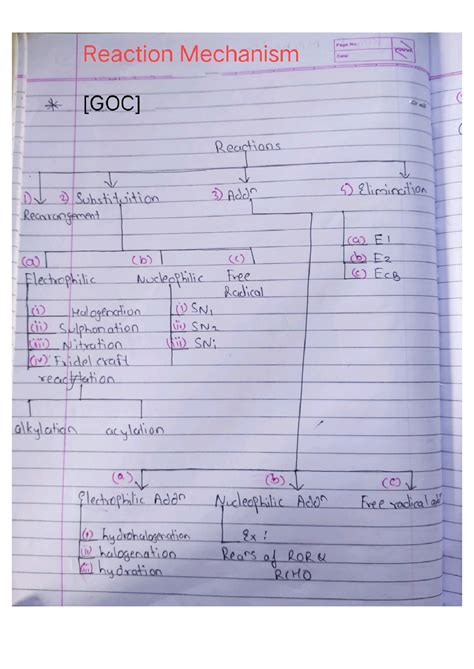 Reaction Mechanism
Page No.:
Date:
* [GOC]
Reactions
1) 2) Substituition 3) Addn 4) Elimination
Rearrangement
(a) (b) (c)
Electrophilic Nucleophilic Free
Radical
(a) E1
(b) E2
(c) EcB
(i) Halogenation
(ii) Sulphonation
(iii) Nitration
(iv) Fridel craft
reaction
(i) SN1
(ii) SN2
(iii) SNi
alkylation acylation
(a) (b) (c)
Electrophilic Addn Nucleophilic Addn Free radical
(i) hydrohalogenation
(ii) halogenation
(iii) hydration
Ex :
of
RCHO